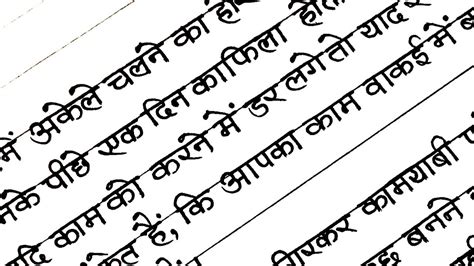 में अकेले चलने का हौ
नके पीछे एक दिन काफिला होता
यदि काम को करने में डर लगे तो याद र
केत है, कि आपका काम वाकई में ब
गिरकर कामयाबी प
छ बनने